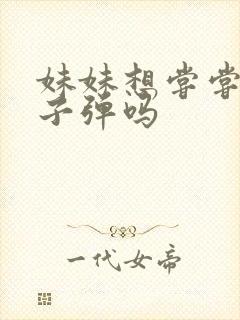 妹妹想尝尝
子弹吗
一代女帝